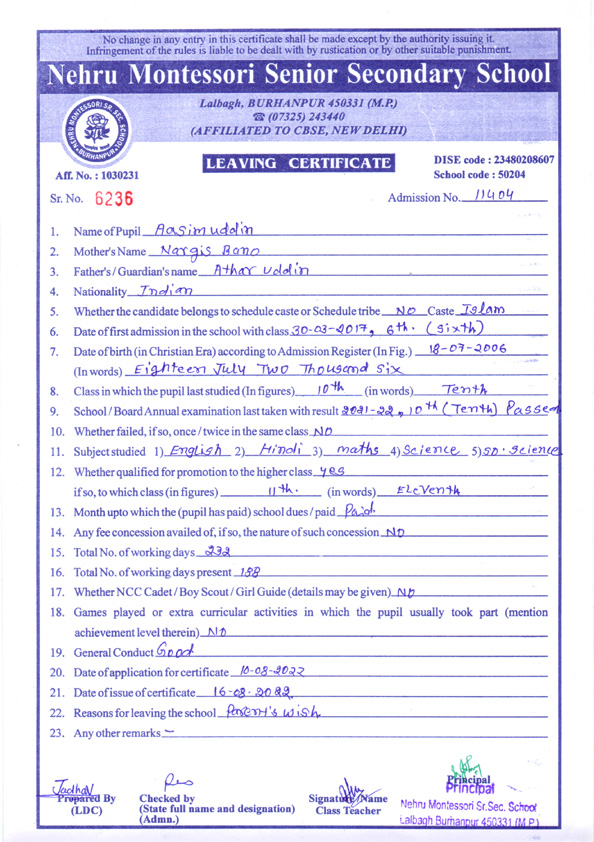 No change in any entry in this certificate shall be made except by the authority issuing it.
Infringement of the rules is liable to be dealt with by rustication or by other suitable punishment.
Nehru Montessori Senior Secondary School
NEHRU MONTESSORI SR. SEC. SCHOOL
BURHANPUR
Lalbagh, BURHANPUR 450331 (M.P.)
☎ (07325) 243440
(AFFILIATED TO CBSE, NEW DELHI)
Aff. No. : 1030231
LEAVING CERTIFICATE
DISE code : 23480208607
School code : 50204
Sr. No. 6236
Admission No. 11404
1. Name of Pupil Aasimuddin
2. Mother's Name Nargis Bano
3. Father's / Guardian's name Athar Uddin
4. Nationality Indian
5. Whether the candidate belongs to schedule caste or Schedule tribe NO Caste Islam
6. Date of first admission in the school with class 30-03-2017, 6th. (Sixth)
7. Date of birth (in Christian Era) according to Admission Register (In Fig.) 18-07-2006
(In words) Eighteen July Two Thousand Six
8. Class in which the pupil last studied (In figures) 10th (in words) Tenth
9. School / Board Annual examination last taken with result 2021-22, 10th (Tenth) Passed
10. Whether failed, if so, once / twice in the same class NO
11. Subject studied 1) English 2) Hindi 3) maths 4) Science 5) SO. Science
12. Whether qualified for promotion to the higher class yes
if so, to which class (in figures) 11th. (in words) Eleventh
13. Month upto which the (pupil has paid) school dues / paid Paid
14. Any fee concession availed of, if so, the nature of such concession NO
15. Total No. of working days 232
16. Total No. of working days present 188
17. Whether NCC Cadet / Boy Scout / Girl Guide (details may be given) NO
18. Games played or extra curricular activities in which the pupil usually took part (mention
achievement level therein) NO
19. General Conduct Good
20. Date of application for certificate 10-08-2022
21. Date of issue of certificate 16-08-2022
22. Reasons for leaving the school Parent's wish
23. Any other remarks –
Jadhav
Prepared By
(LDC)
Checked by
(State full name and designation)
(Admn.)
Signature/Name
Class Teacher
Principal
Principal
Nehru Montessori Sr.Sec. School
Lalbagh Burhanpur 450331 (M.P.)